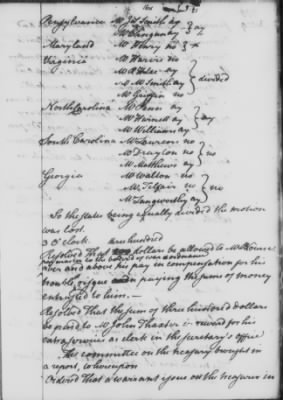 Pensylvania Mr Ja. Smith ay } ay
Mr Clingan ay
Maryland Mr Henry no } x
Virginia Mr Harvie no
Mr Adams ay
Mr M. Smith ay } divided
Mr Griffin no
North Carolina Mr Penn ay
Mr Harnett ay } ay
Mr Williams ay
South Carolina Mr Laurens no
Mr Drayton no } no
Mr Matthews ay
Georgia Mr Walton no
Mr Telfair no } no
Mr Langworthy ay
So the states being equally divided the motion
was lost.
3 O'Clock.
Resolved That three hundred dollars be allowed to Mr
over and above his pay in compensation for his
trouble & risque in paying the sums of money
entrusted to him.—
Resolved That the sum of three hundred dollars
be paid to Mr John Thaxter in reward for his
extra services as clerk in the secretary's office
The committee on the treasury brought in
a report, whereupon
Ordered That a warrant issue on the treasurer in